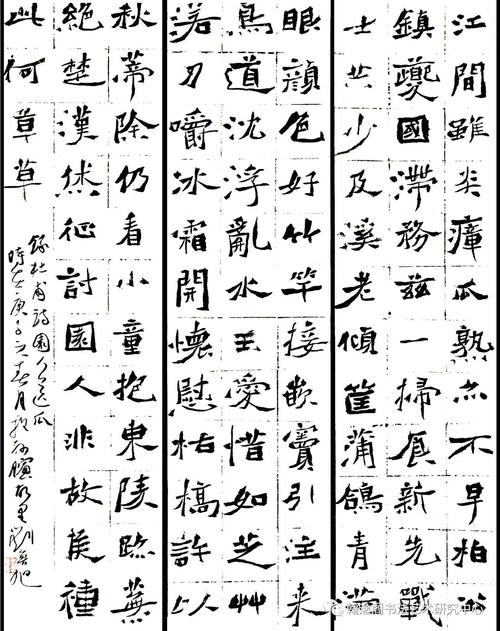 江間雖炎瘴瓜熟亦不早柏公
鎮夔國滯務茲一掃食新先戰
士共少及溪老傾筐蒲鴿青滿
眼顏色好竹竿接嵌竇引注來
鳥道沈浮亂水玉愛惜如芝艸
落刃嚼冰霜開懷慰枯槁許以
秋蒂除仍看小童抱東陵跡蕪
絕楚漢休征討園人非故侯種
此何草草
錄杜甫詩園人送瓜
時在庚子之春月於 劉 旭
书法艺术研究中心